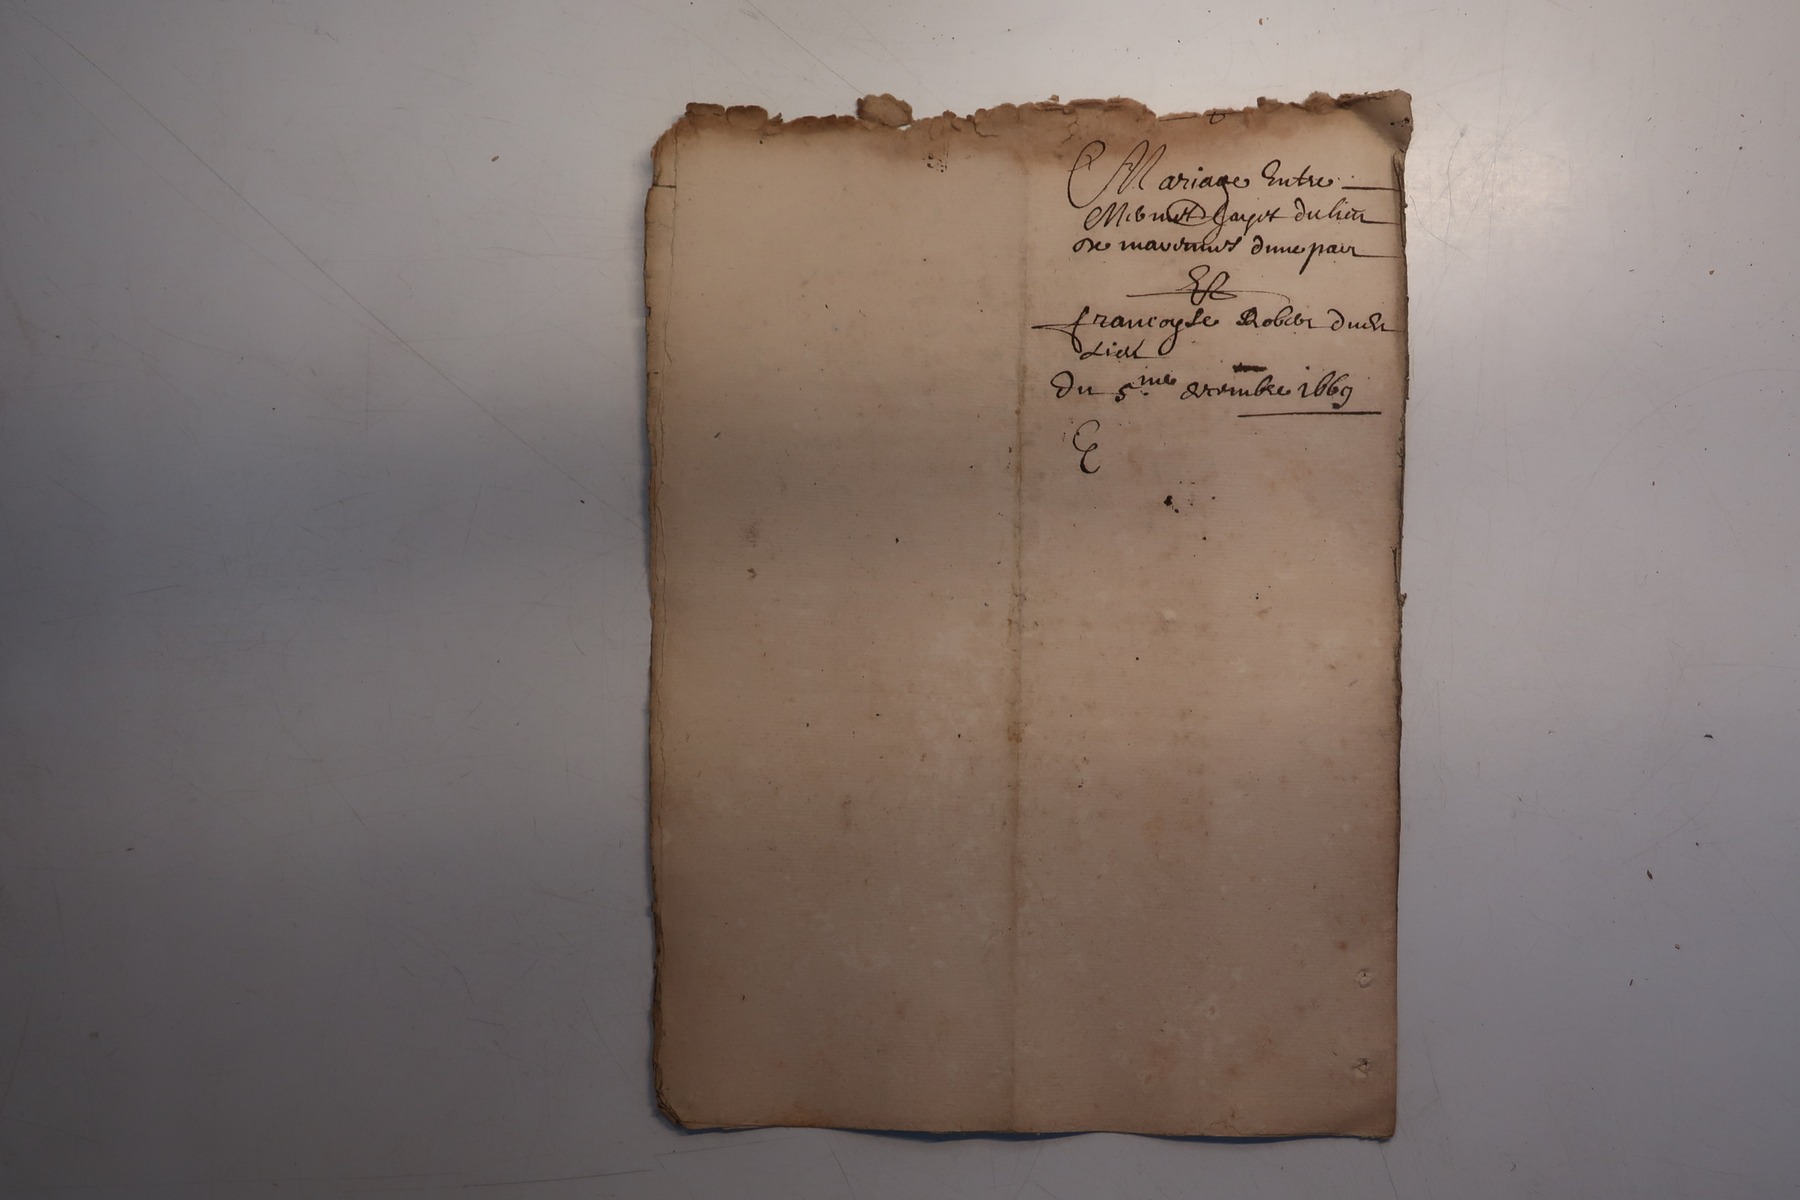 Mariage Entre
Gayot du lieu
de dune part
Et
francoyse Robert dud
Lieu
du 5.me decembre 1669